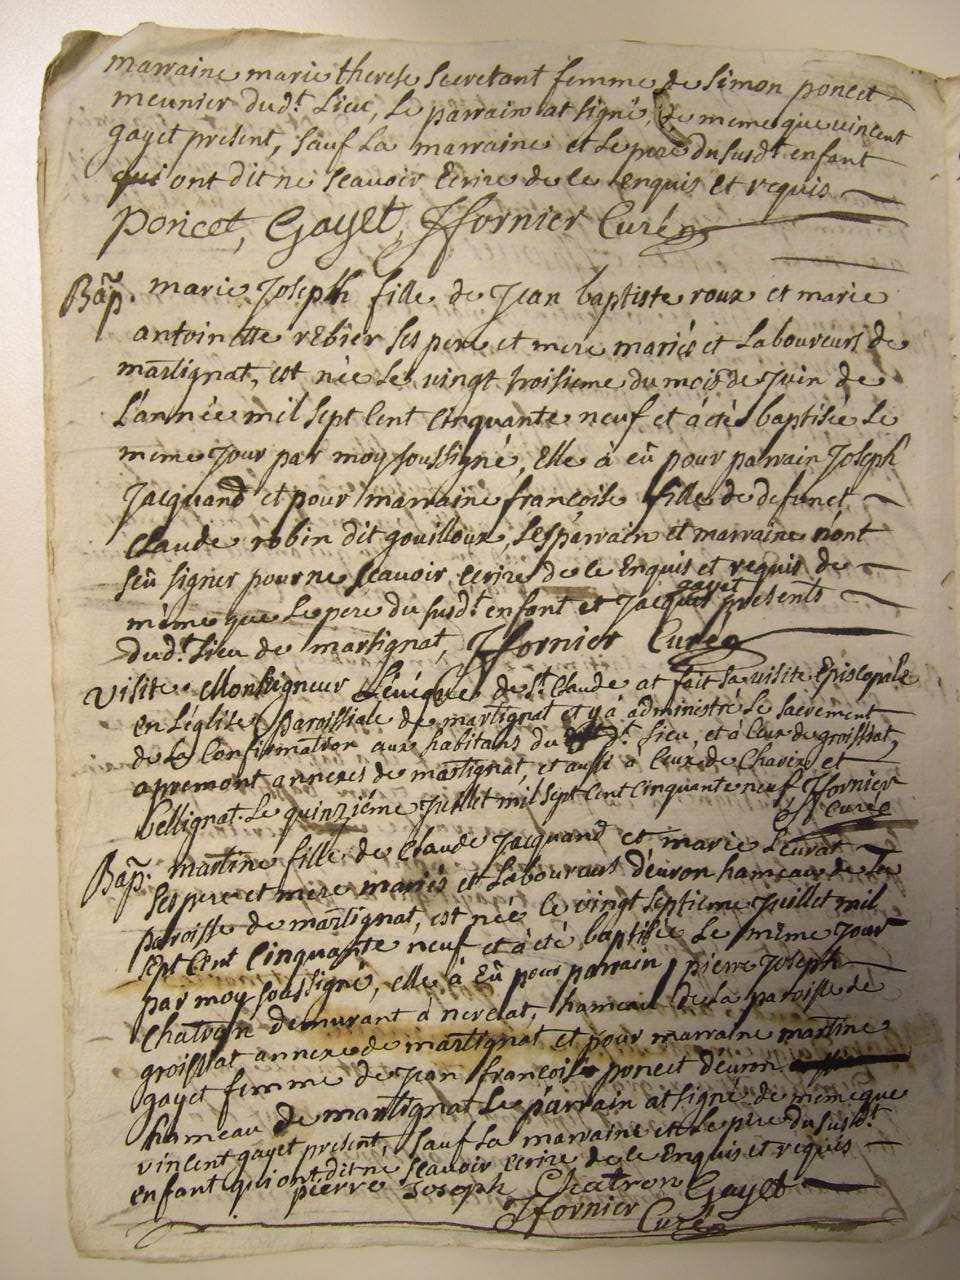 marraine marie therese Secretant femme de Simon poncet
meunier dud.t Lieu, Le parrain at signé, de meme que vincent
gayet present, Sauf La marraine et Le pere du susd.t enfant
qui ont dit ne Scavoir Ecrire de ce Enquis et requis
Poncet, Gayet, Jfornier Curé
Bap. marie Joseph fille de Jean baptiste roux et marie
antoinette rebier Ses pere et mere mariés et Laboureurs de
martignat, est née Le vingt troisieme du mois de Juin de
L'année mil Sept Cent Cinquante neuf et à été baptisée Le
meme Jour par moy soussigné, Elle à eû pour parrain Joseph
Jacquand et pour marraine francoise fille de defunct
Claude robin dit gouilloux, Les parrain et marraine n'ont
Seû signer pour ne Scavoir ecrire de ce Enquis et requis de
même que Le pere du susd.t enfant et Jacques gayet presents
dud.t Lieu de martignat, Jfornier Curé
Visite Monseigneur L'évéque de S.t Claude at fait sa visite Episcopale
en L'église Paroissiale de martignat et y à administré Le Sacrement
de La Confirmation aux habitans du d.t Lieu, et à Ceux de groissiat,
apremont annexes de martignat, et aussi à Ceux de Chavix et
bellignat. Le quinziéme Juillet mil Sept Cent Cinquante neuf Jfornier
Curé
Bap. martine fille de Claude Jacquand et marie Levrat
Ses pere et mere mariés et Laboureurs d'evron hameau de La
paroisse de martignat, est née Le vingt Septieme Juillet mil
Sept Cent Cinquante neuf et à été baptisée Le même Jour
par moy soussigné, elle à Eû pour parrain pierre Joseph
Chatron demurant à nerciat, hameau de La paroisse de
groissiat annexe de martignat et pour marraine martine
gayet femme de Jean francois poncet d'evron
hameau de martignat Le parrain at signé de même que
vincent gayet present, Sauf La marraine et Le pere du susd.t
enfant qui ont dit ne Scavoir ecrire de ce Enquis et requis
pierre Joseph Chatron Gayet
Jfornier Curé